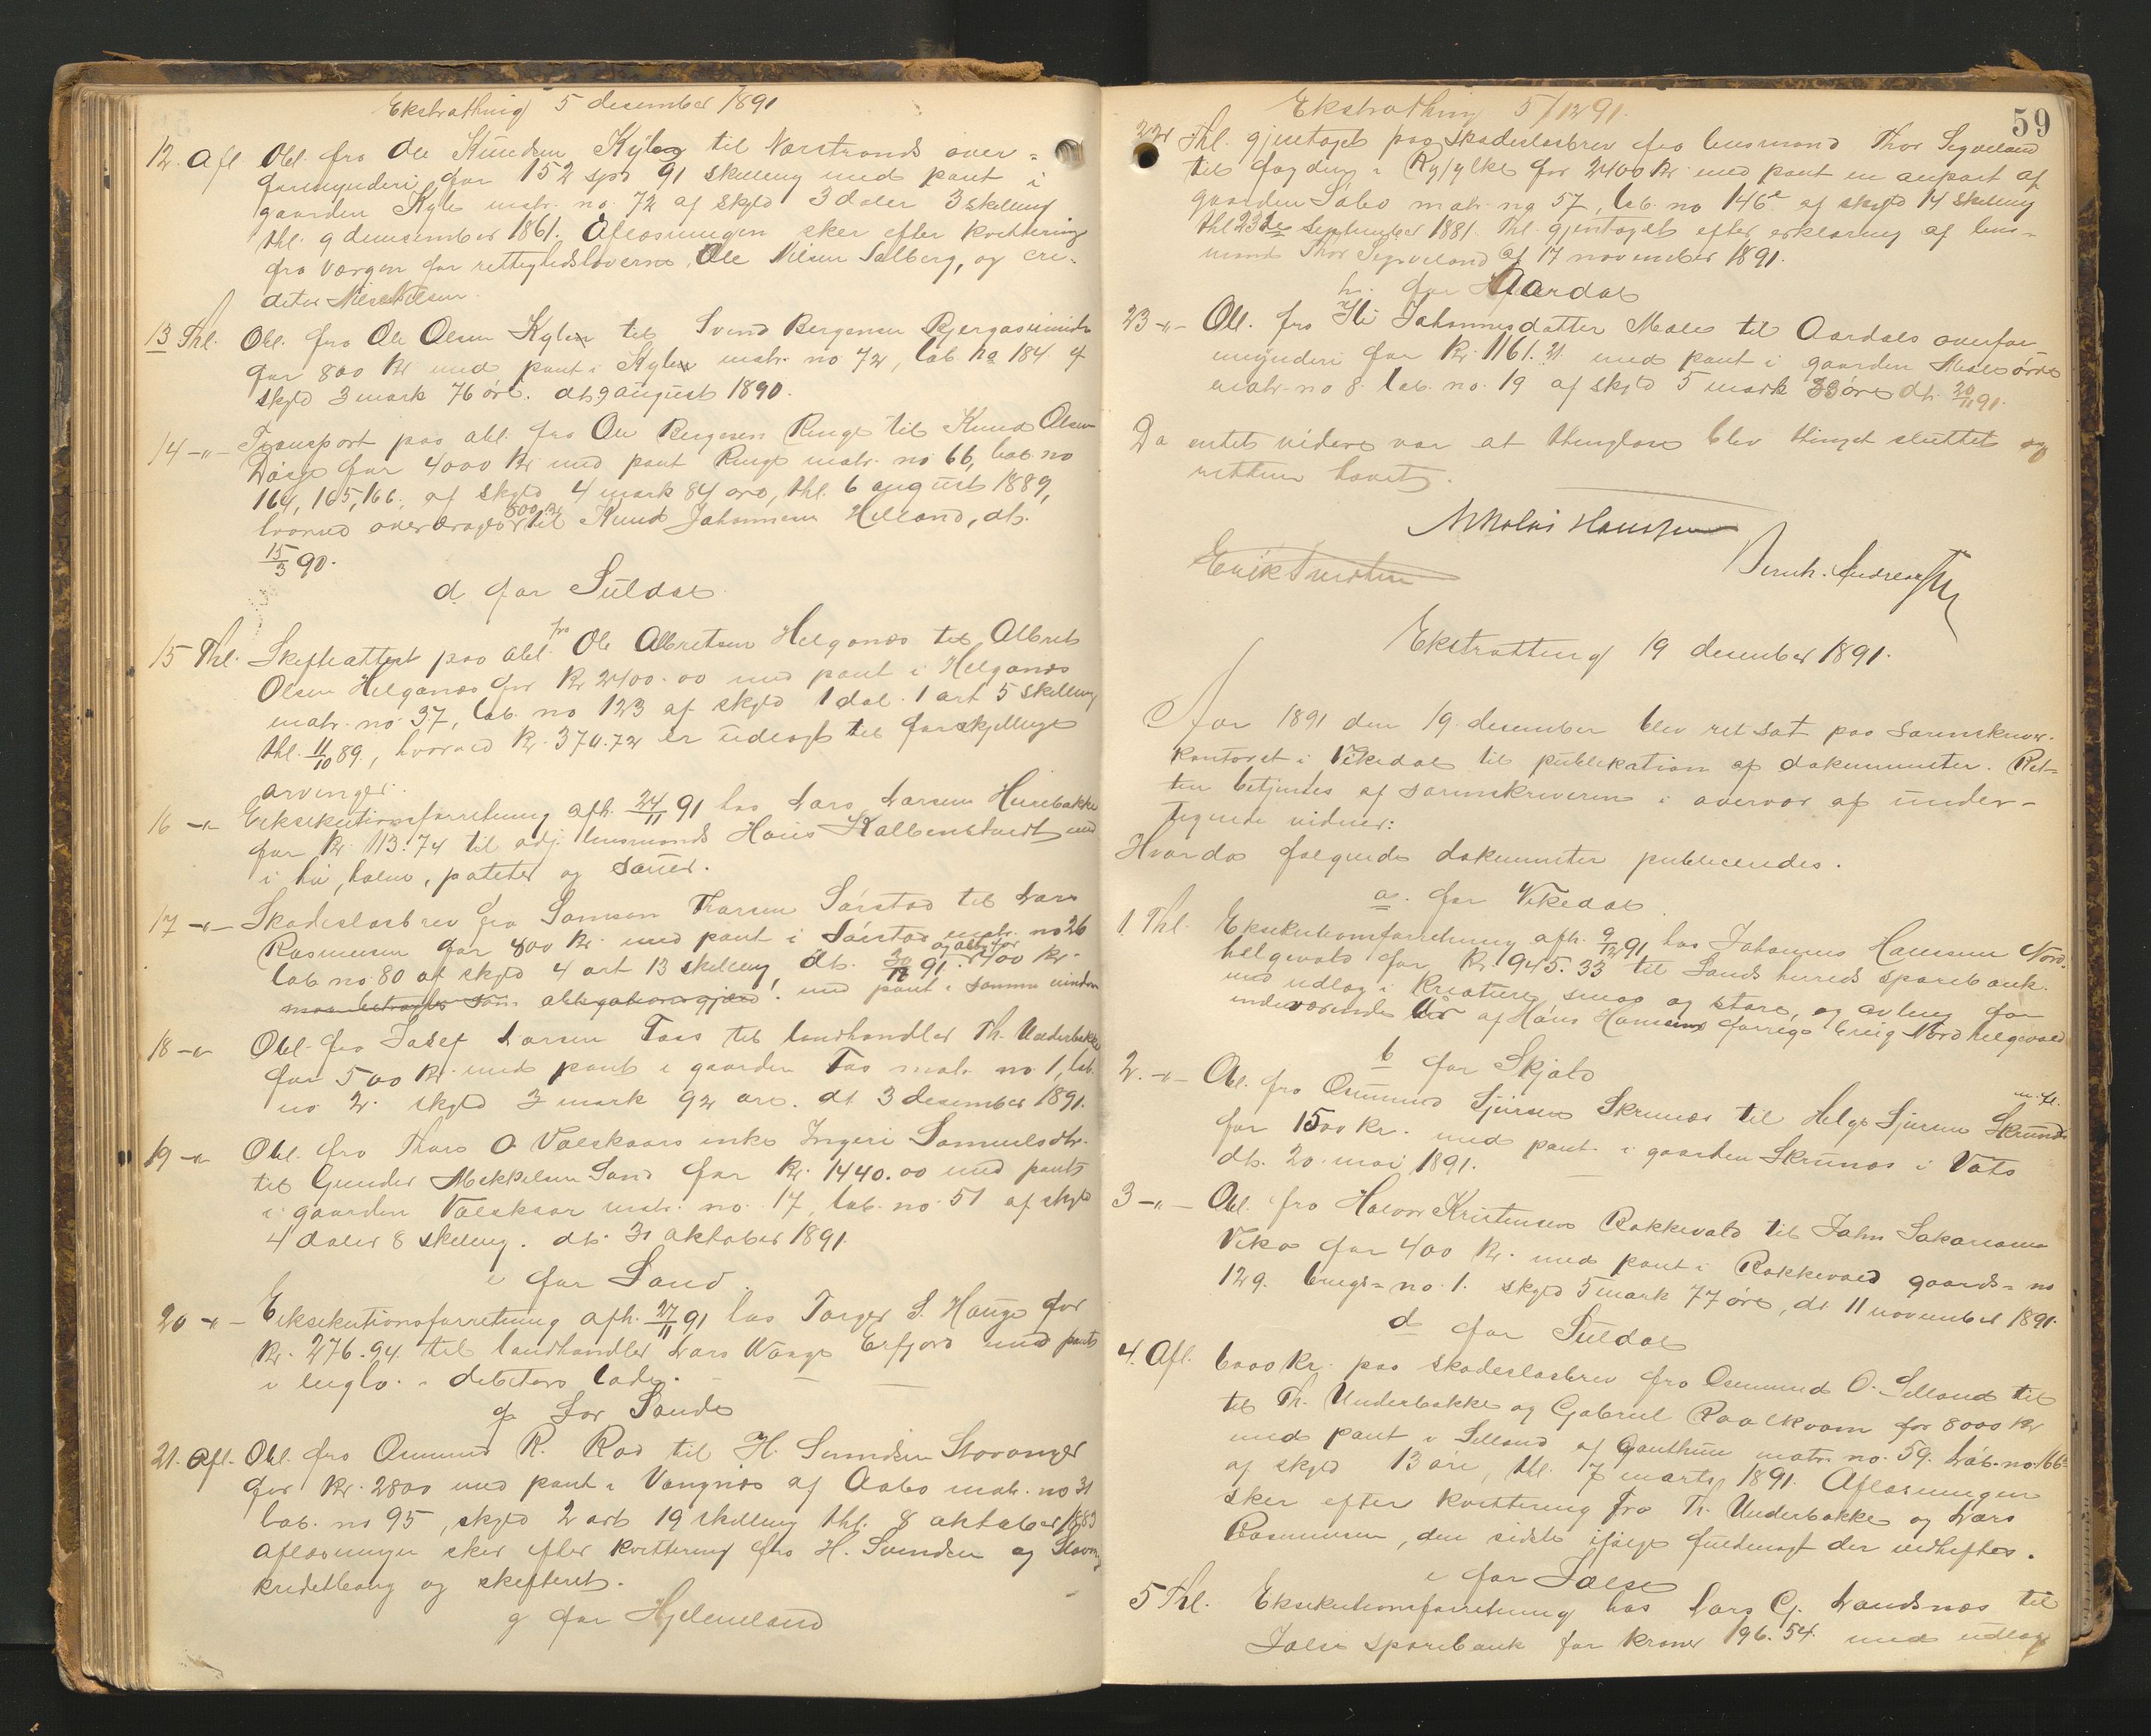 Ekstrathing 5 desember 1891
12. Afl Obl. fra Ole Knudsen Kyle til Nærstrands over-
formynderi for 152 spd 91 skilling med pant i
gaarden Kyle matr. no. 72 af skyld 3 daler 3 skilling
thl. 9 demsember 1861. Aflæsningen sker efter kvittering
fra værgen for rettighedshaverne, Ole Nilsen Salberg, og cre-
ditor Nilsen.
13 Thl. Obl. fra Ole Olsen Kyle til Svend Bergersen
for 800 kr med pant i Kyle matr. no 72, løb. no 184 af
skyld 3 mark 76 øre. dt. 9 august 1890.
14 -"- Transport paa obl. fra Ole Bergesen Ringe til Knud Olsen
for 4000 kr med pant Ringe matr. no 66, løb. no
164, 165, 166, af skyld 4 mark 84 øre, thl. 6 august 1889,
hvorved overdrages 800 kr til Knud Johannesen Helland, dt.
15/3 90.
d for Suldal
15 Thl. Skifteattest paa obl. fra Ole Albretsen Helganæs til Albret
Olsen Helganæs for kr 2400.00 med pant i Helganæs
matr. no 37, løb. no 123 af skyld 1 dal. 1 ort 5 skilling
thl. 11/10 89, hvorved kr. 370.72 er udlagt til forskjellige
arvinger.
16 -"- Eksekutionsforretning afh. 24/11 91 hos Lars Larsen
for kr 113.74 til adj. lensmand Hans Kalbenstvedt med
i hø, halm, poteter og sauer.
17 -"- Skadesløsbrev fra Samson Thorsen Sørstad til Lars
Rasmussen for 400 kr. med pant i Sørstad matr. no 26
løb no 80 af skyld 4 ort 13 skilling, dt. 91. 400 kr.
obligationsgjæld. med pant i samme eiendom
18 -"- Obl. fra Josef Larsen Foss til landhandler Th. Underbakke
for 500 kr med pant i gaarden Fos matr. no 1, løb.
no 2. skyld 3 mark 92 øre. dt 3 desember 1891.
19 -"- Obl. fra Thore O. Valskaars enke Ingeri Samuelsdtr.
til Gunder Mekkelsen Sand for kr. 1440.00 med pant
i gaarden Valskaar matr. no. 17, løb. no. 51 af skyld
4 daler 8 skilling. dt. 31 oktober 1891.
e for Sand.
20 -"- Eksekutionsforretning afh. 27/11 91 hos Torger S. Hauge for
kr. 276.94 til landhandler Lars Vaage Erfjord med pant
i debitors lade.
f for Saude
21. Afl. Obl. fra Osmund R. Røo til H. Svendsen Stavanger
for kr. 2800 med pant i Vangnæs af Aabø matr. no 31
løb. no 95, skyld 2 ort 19 skilling thl. 8 oktober 1883
aflæsningen sker efter kvittering fra H. Svendsen og Stavang
kreditbank og skifteret.
g for Hjelmeland
59
Ekstrathing 5/12 91.
22 Thl. gjentaget paa skadesløsbrev fra lensmand Thor Segveland
til fogden i Ryfylke for 2400 kr med pant en anpart af
gaarden Sabø matr. no 57, løb. no 146 af skyld 14 skilling
thl 23de september 1881. Thl. gjentaget efter erklæring af lens-
mand Thor Segveland af 17 november 1891.
h. for Aardal
23 -"- Obl. fra Johannesdatter Mæle til Aardals overfor
mynderi for kr. 1161.21 med pant i gaarden
matr. no 8. løb. no. 19 af skyld 5 mark 33 øre dt. 20/11 91.
Da entet videre var at thinglæse blev thinget sluttet og
retten hævet.
Nikolai Hanssen
Erik Iversten
Bernh. Andreassen
Ekstratting 19 desember 1891.
Aar 1891 den 19. desember blev ret sat paa sorenskriver-
kontoret i Vikedal til publikation af dokumenter. Ret-
ten betjentes af sorenskriveren i overvær af under-
tegnede vidner:
Hvorda følgende dokumenter publiceredes.
a. for Vikedal
1 Thl. Eksekutionsforretning afh. 9/12 91 hos Johannes Hanssen Nord-
helgevold for kr. 1945.33 til Sands herreds sparebank.
med udlæg i kreature smaa og store, og avling for
indeværende aar af Hans Hansens forrige brug Nordhelgevold
b for Skjold
2. -"- Obl. fra Osmund Sjursen Skrunæs til Helge Sjursen Skrunæs m. fl.
for 1500 kr. med pant i gaarden Skrunæs i Vats
dt. 20. mai 1891.
3 -"- Obl. fra Halvor Kristensen Rakkevold til John Sakariasen
Vika for 400 kr. med pant i Rakkevold gaards- no
129. brugs- no. 1. skyld 5 mark 77 øre, dt 11 november 1891.
d for Suldal
4. Afl. 6000 kr. paa skadesløsbrev fra Osmund O. Selland til
til Th. Underbakke og Gabriel Raalkvam for 8000 kr
med pant i Selland af matr. no. 59. Løb. no. 166
af skyld 13 øre, thl. 7 marts 1891. Aflæsningen
sker efter kvittering fra Th. Underbakke og Lars
Rasmussen, den sidste ifølge fuldmagt der vedheftes.
e for Jælse
5 Thl. Eksekutionsforretning hos Lars G. Landsnæs til
Jælse sparebank for kroner 196.54 med udlæg